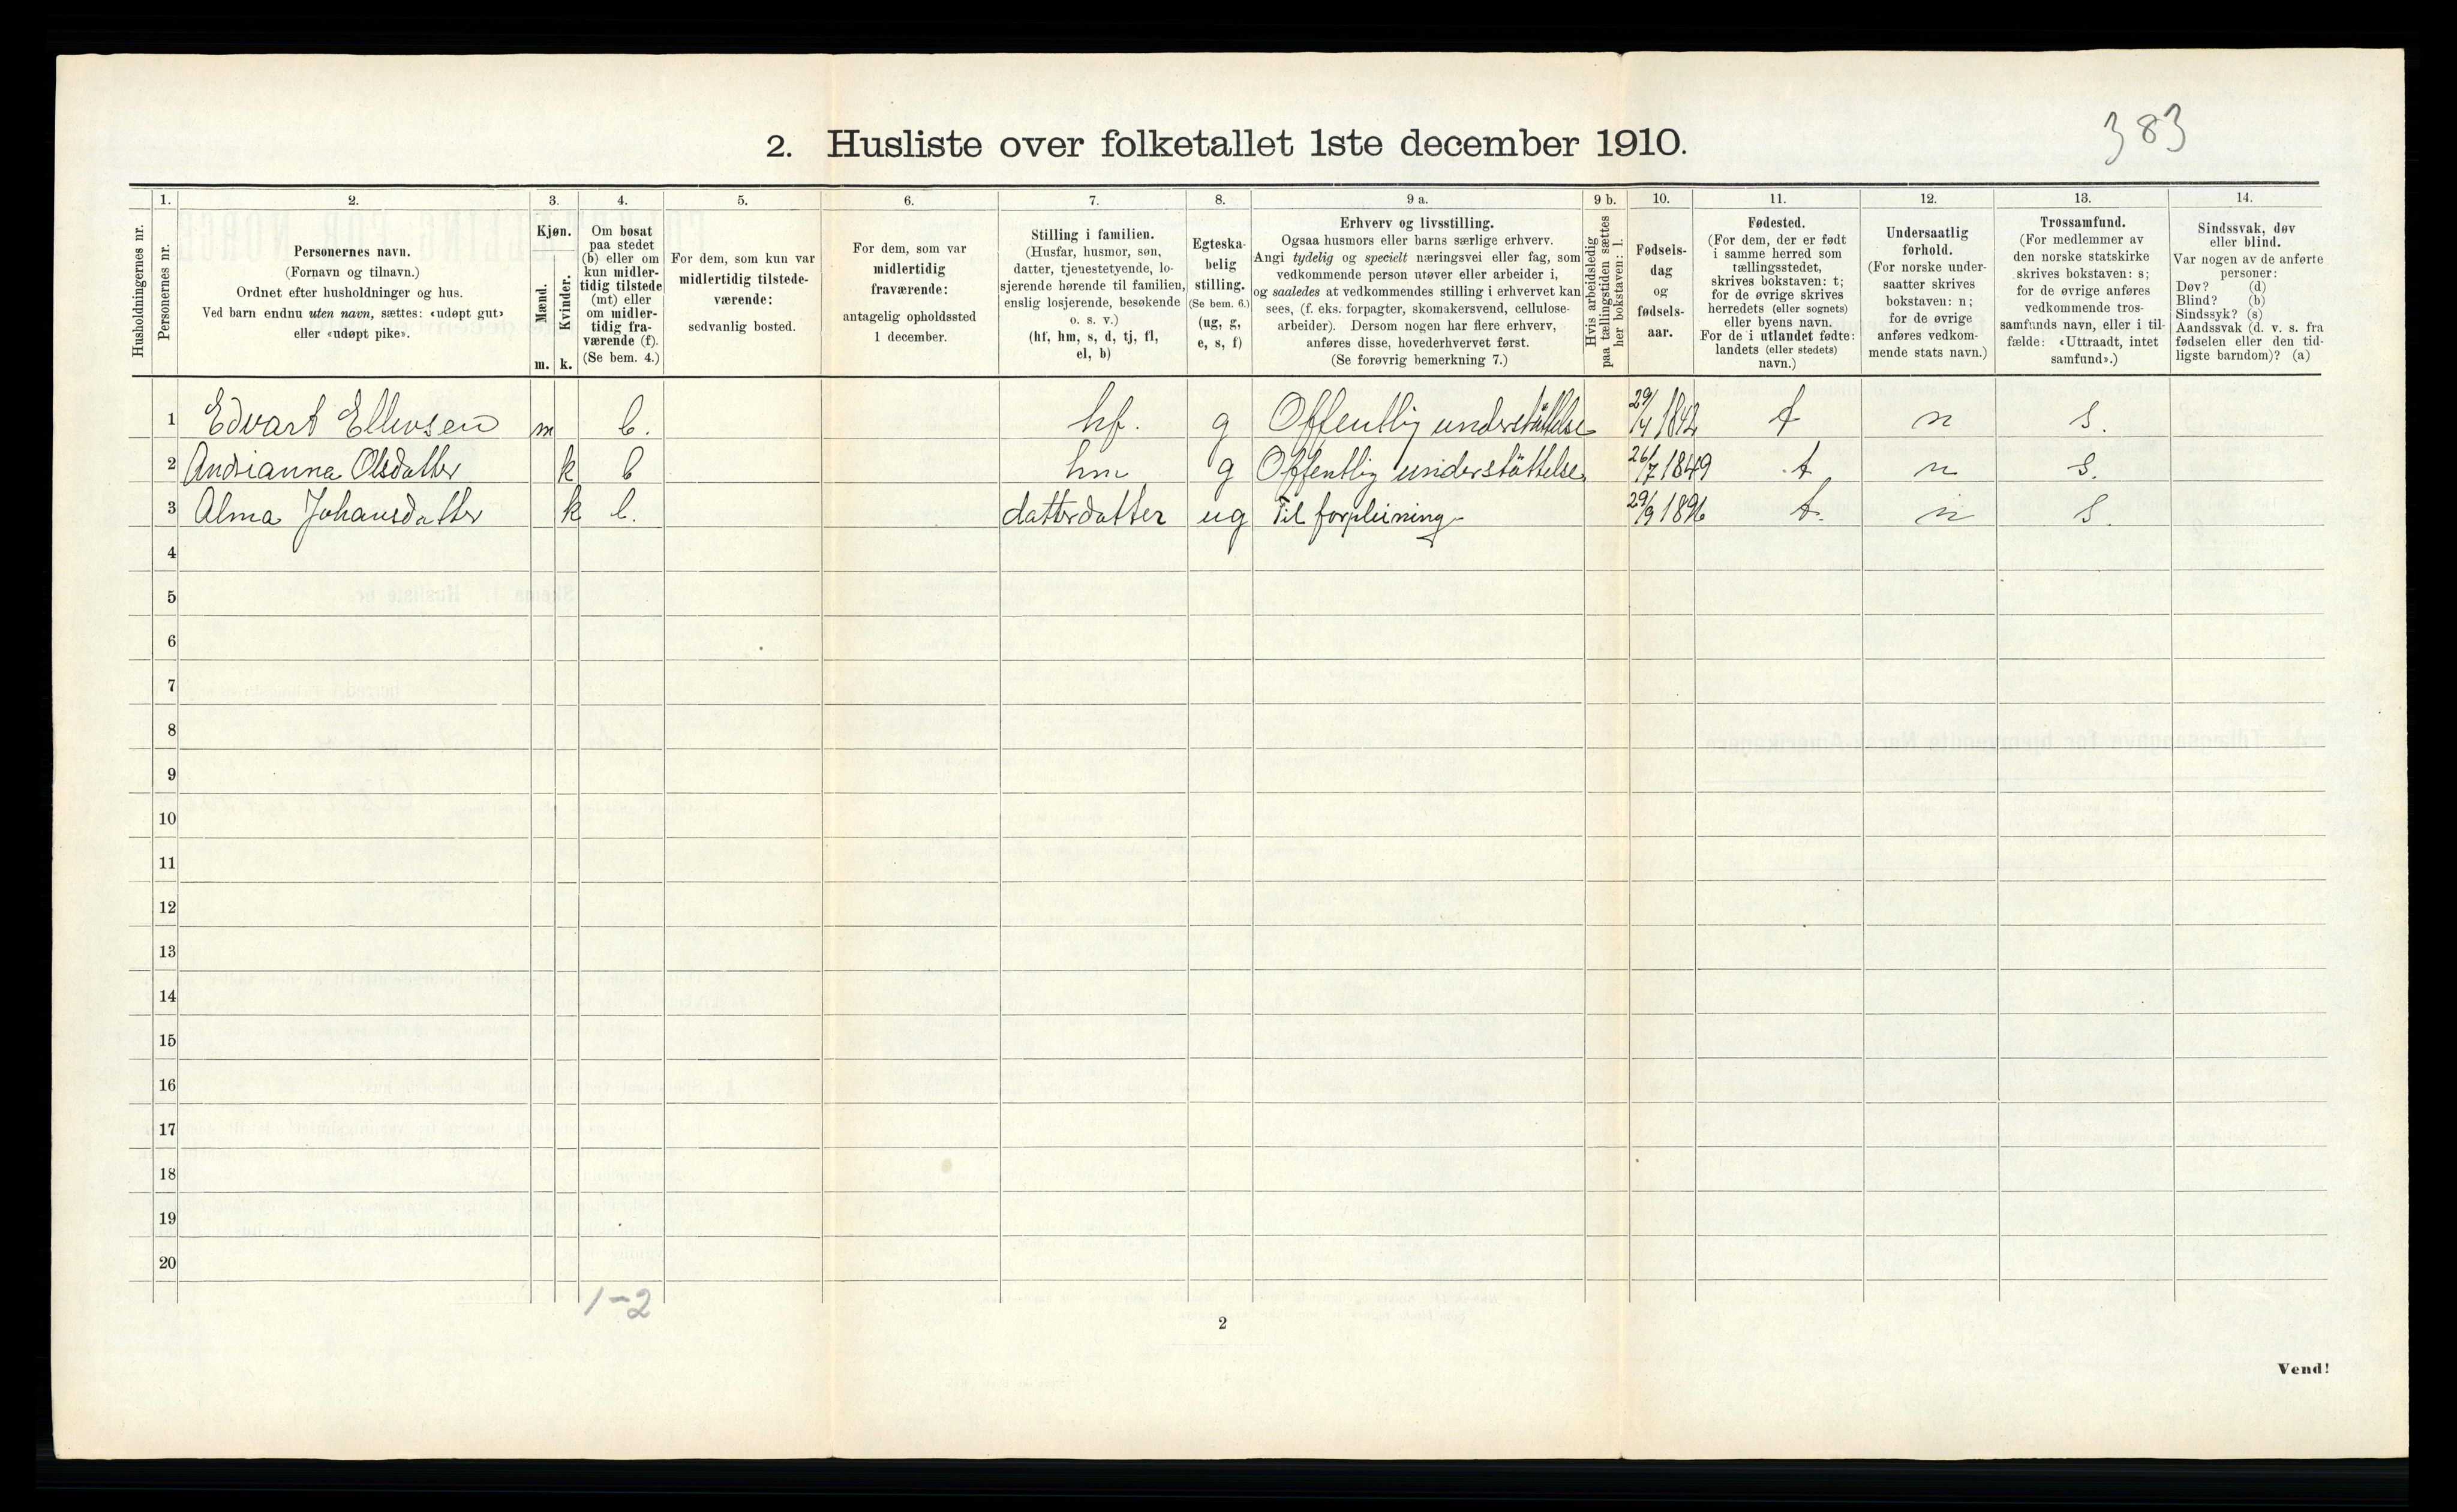 383
2. Husliste over folketallet 1ste december 1910.
Husholdningernes nr.
1.
Personernes nr.
2.
Personernes navn.
(Fornavn og tilnavn.)
Ordnet efter husholdninger og hus.
Ved barn endnu uten navn, sættes: «udøpt gut»
eller «udøpt pike».
3.
Kjøn.
Mænd.
Kvinder.
m. k.
4.
Om bosat
paa stedet
(b) eller om
kun midler-
tidig tilstede
(mt) eller
om midler-
tidig fra-
værende (f).
(Se bem. 4.)
5.
For dem, som kun var
midlertidig tilstede-
værende:
sedvanlig bosted.
6.
For dem, som var
midlertidig
fraværende:
antagelig opholdssted
1 december.
7.
Stilling i familien.
(Husfar, husmor, søn,
datter, tjenestetyende, lo-
sjerende hørende til familien,
enslig losjerende, besøkende
o. s. v.)
(hf, hm, s, d, tj, fl,
el, b)
8.
Egteska-
belig
stilling.
(Se bem. 6.)
(ug, g,
e, s, f)
9 a.
Erhverv og livsstilling.
Ogsaa husmors eller barns særlige erhverv.
Angi tydelig og specielt næringsvei eller fag, som
vedkommende person utøver eller arbeider i,
og saaledes at vedkommendes stilling i erhvervet kan
sees, (f. eks. forpagter, skomakersvend, cellulose-
arbeider). Dersom nogen har flere erhverv,
anføres disse, hovederhvervet først.
(Se forøvrig bemerkning 7.)
9 b.
Hvis arbeidsledig
paa tællingstiden sættes
her bokstaven: l.
10.
Fødsels-
dag
og
fødsels-
aar.
11.
Fødested.
(For dem, der er født
i samme herred som
tællingsstedet,
skrives bokstaven: t;
for de øvrige skrives
herredets (eller sognets)
eller byens navn.
For de i utlandet fødte:
landets (eller stedets)
navn.)
12.
Undersaatlig
forhold.
(For norske under-
saatter skrives
bokstaven: n;
for de øvrige
anføres vedkom-
mende stats navn.)
13.
Trossamfund.
(For medlemmer av
den norske statskirke
skrives bokstaven: s;
for de øvrige anføres
vedkommende tros-
samfunds navn, eller i til-
fælde: «Uttraadt, intet
samfund».)
14.
Sindssvak, døv
eller blind.
Var nogen av de anførte
personer:
Døv? (d)
Blind? (b)
Sindssyk? (s)
Aandssvak (d. v. s. fra
fødselen eller den tid-
ligste barndom)? (a)
1 Edvart Ellevsen m b. hf. g Offentlig understöttelse 29/4 1842 t n s.
2 Andrianna Olsdatter k b hm g Offentlig understöttelse 26/7 1849 t n s.
3 Alma Johansdatter k b. datterdatter ug Til forpleining 29/9 1896 t. n s.
4
5
6
7
8
9
10
11
12
13
14
15
16
17
18
19
20
1-2
2
Vend!